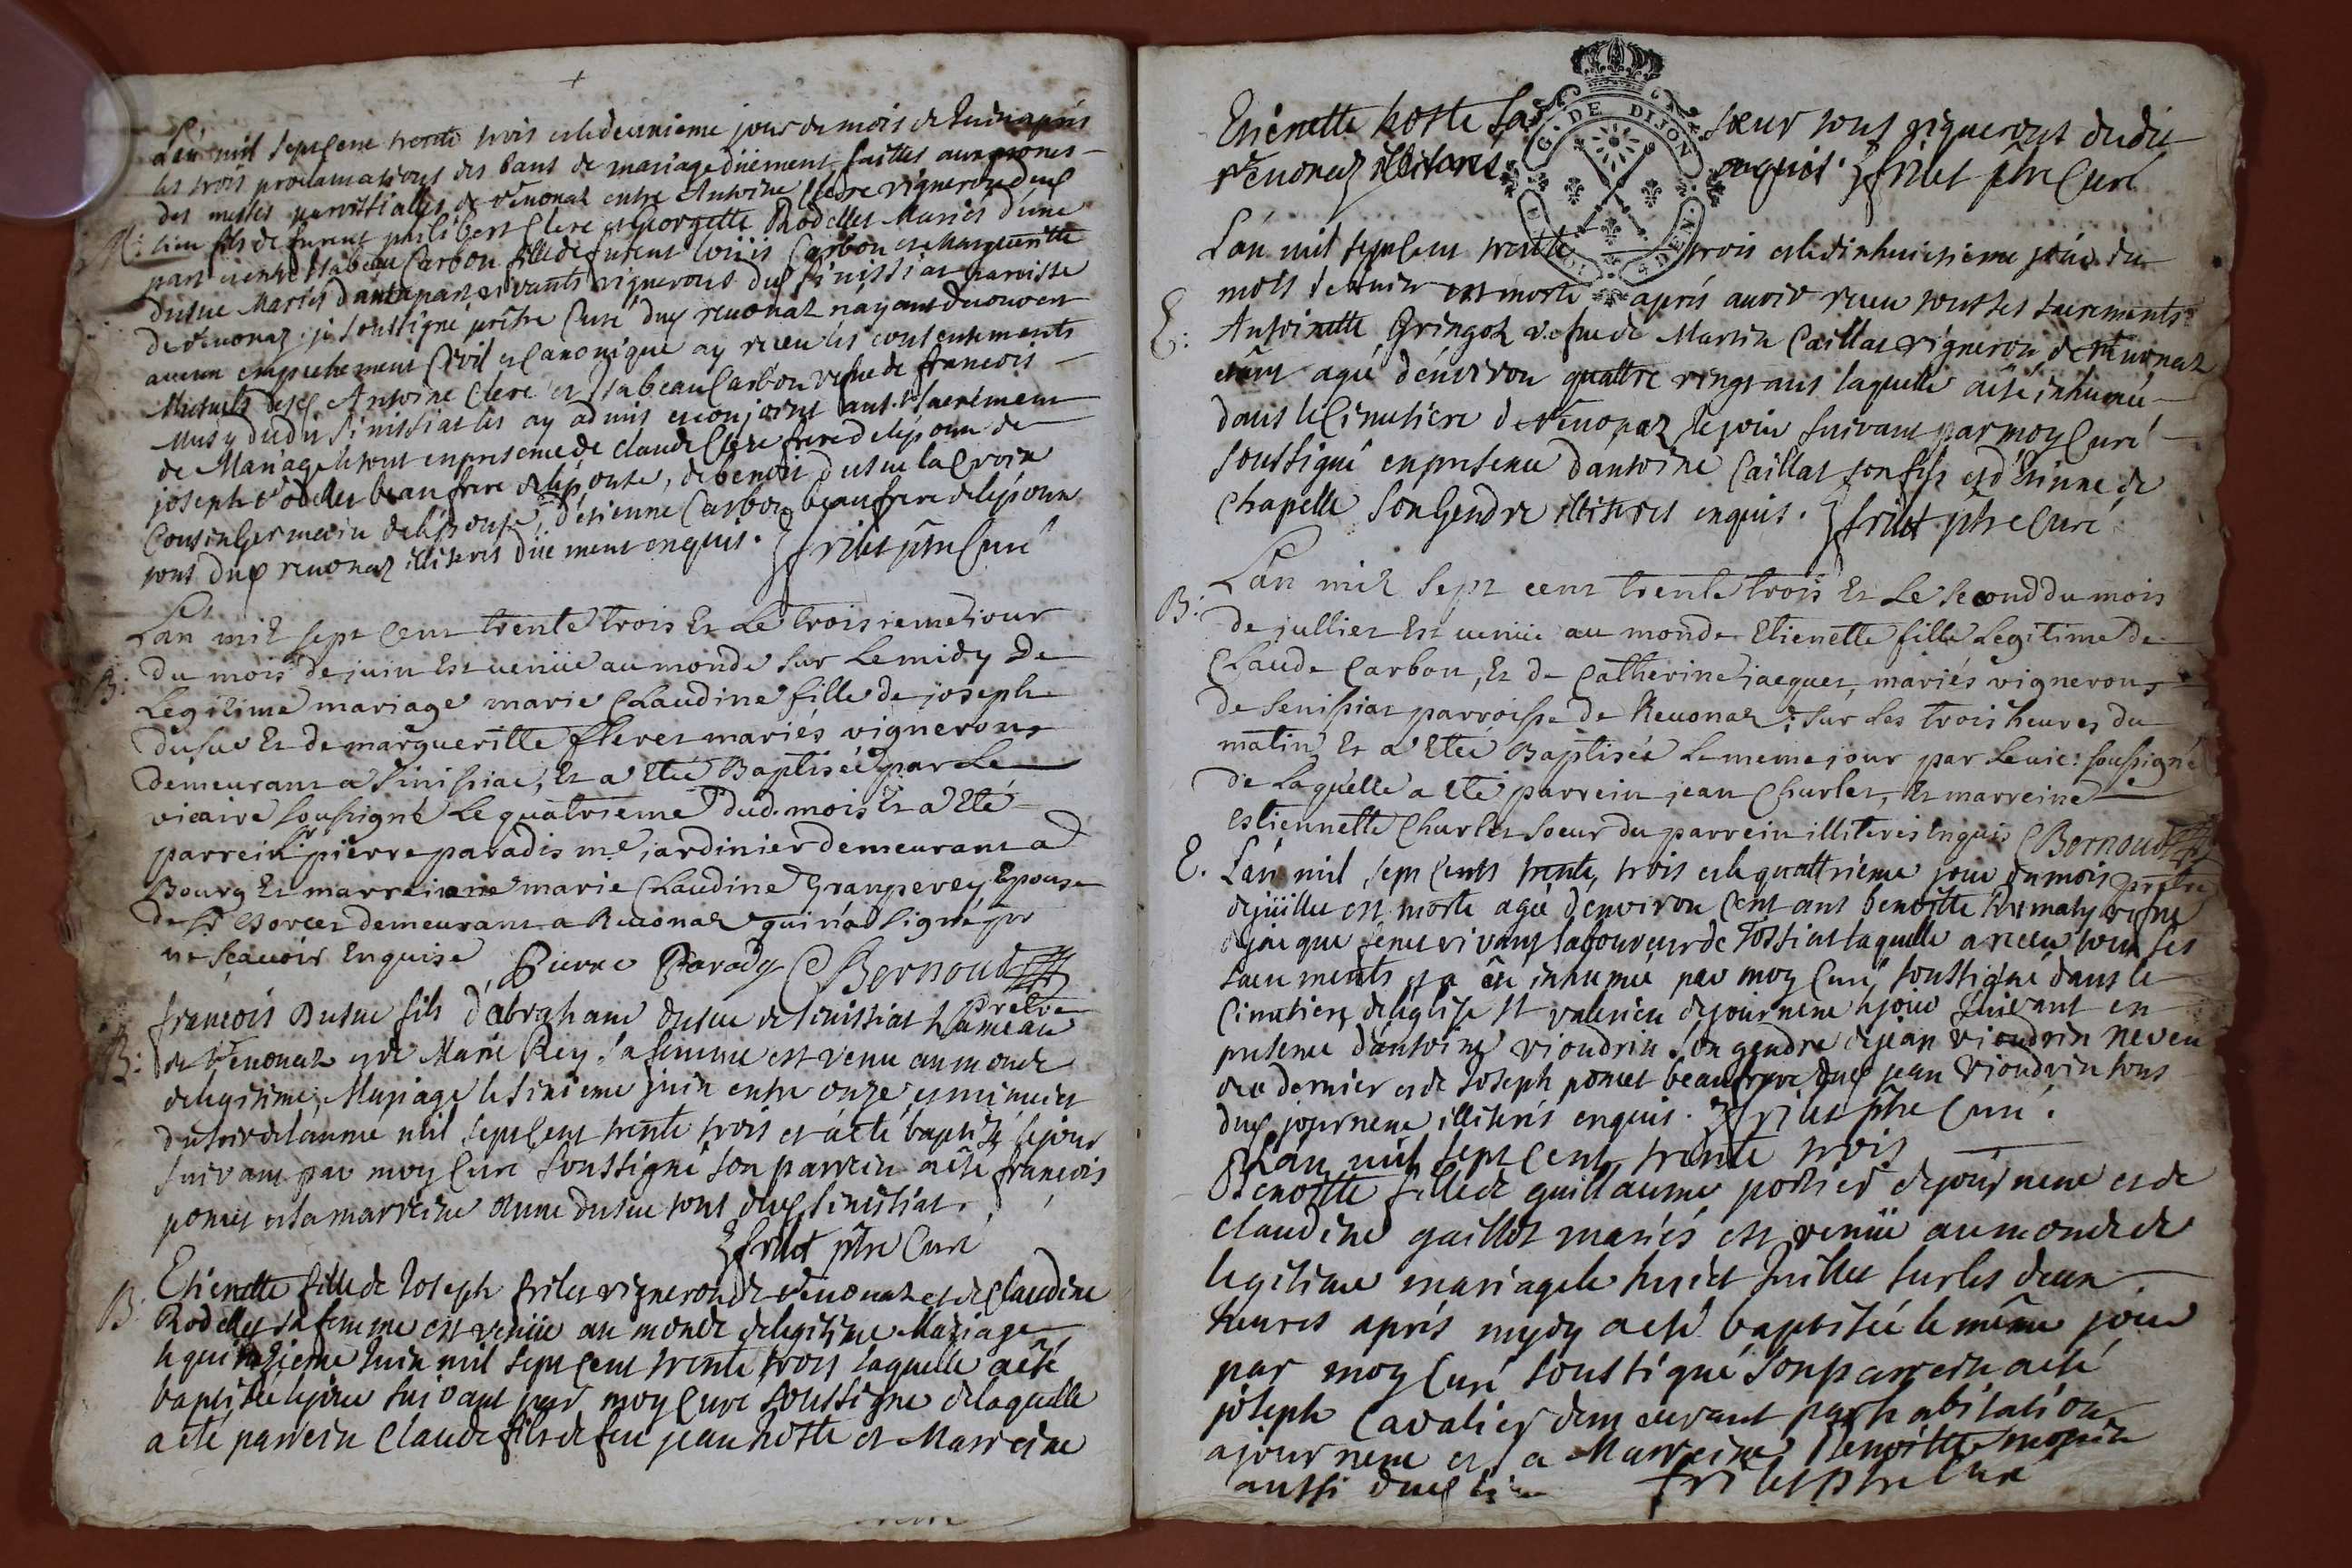 L'an mil sept cent trente trois et le deuxieme jour du mois de Juin après
les trois proclamations des bans de mariage düement faittes aux prones
des messes parroissialles de Revonaz entre Antoine Clerc vigneron dud
M: lieu fils de furent philibert Clerc et georgette Rodellet Mariés d'une
part et entre Isabeau Carbon fille de furent Loüis Carbon et Margueritte
dusue Mariés d'autre part vivants vignerons de Sinissiat parroisse
de Revonaz. je soussigné prêtre Curé dud revonaz n'ayant découvert
aucun empechement Civil et Canonique ay receu les consentements
Mutuels desd Antoine Clerc et Isabeau Carbon vefue de francois
Musy dudit Sinissiat les ay admis et conjoint au St Sacrément
de Mariage le tout en presence de Claude Clerc frere de lépoux de
joseph Rodellet beaufrere de lépouse, de benoit dusue la Croix
Cousin Germain de lépouse, d'etienne Carbon beaufrere de lépoux
tous dud revonaz illiterés düement enquis. frilet ptre Curé
Lan mil sept cent trente trois Et Le troisieme jour
B: du mois de juin Est venüe au monde sur Le midy De
Legitime mariage marie Claudine fille de joseph
dusue Et de marguerite mariés vignerons
demeurant a Sinissiac, Et a Eteé Baptisée par Le
vicaire soussigné Le quatrieme dud. mois Et a Eté
parrein Sr pierre paradis me jardinier demeurant a
Bourg Et marreine marie Claudine Granperey Epouse
de Sr Borcet demeurant a Revonaz qui n'a Signé pr
ne sçavoir Enquise Pierre Parady CBernoud
Pretre
francois Dusue fils d'abraham dusue de sinissiat hameau
B: de Revonaz et de Marie Rey sa femme est venu au monde
de legitime Mariage le sixieme juin entre onze et minuict
du soir de lannee mil sept cent trente trois et a eté baptisé le jour
suivant par moy Curé soussigné son parrein a eté francois
poncet et sa marreine anne dusue tous dud sinissiat.
frilet ptre Curé
Etienette fille de Joseph frilet vigneron de Revonaz et de Claudine
B. Rodellet sa femme est venüe au monde de legitime Mariage
le quinzieme Juin mil sept cent trente trois laquelle a eté
baptisée le jour suivant par moy Curé soussigne de laquelle
a eté parrein Claude fils de feu jean hoste et Marreine
Etienette hoste sa soeur tous vignerons dudit
Revonaz illiterés enquis. frilet ptre Curé
G. DE DIJON
L'an mil sept cent trente trois et le dixhuictieme jour du
mois de Juin est morte après avoir receu tous ses sacrements
E: Antoinette Gringoz vefue de Martin Caillat vigneron de Revonaz
agée d'environ quattre vingt ans laquelle a eté inhumée
dans le Cimetiere de Revonaz le jour suivant par moy Curé
soussigné en presence d'antoine Caillat son fils et d'Etienne de
Chapelle son Gendre illiterés enquis. frilet ptre Curé
Lan mil sept cent trente trois Et Le second du mois
B: de jullier Est venüe au monde Etienette fille Legitime de
Claude Carbon, Et de Catherine jaequet, mariés vignerons
de Senissiat parroisse de Revonaz, sur Les trois heures du
matin Et a Eteé Baptiseé Le meme jour par Le vic: soussigné
de Laquelle a Eté parrein jean Churlet, Et marreine
Estiennette Churlet soeur du parrein illiteres Enquis CBernoud
prêtre
E. L'an mil sept cents trente trois et le quattrieme jour du mois
de juillet est morte agée d'environ cent ans benoitte vefue
de jacque vivant laboureur de Tossiat laquelle a receu tous ses
sacrements et a été inhumée par moy Curé soussigné dans le
Cimetiere de léglise St valerien de journenc le jour suivant en
presence d'antoine vioudrin son gendre de jean vioudrin neveu
de ce dernier et de Joseph poncet beaufrere dud jean vioudrin tous
dud journenc illiterés enquis. frilet ptre Curé.
L'an mil sept cent trente trois
Benoitte fille de guillaume portier de journenc et de
Claudine gaillot mariés est venüe au monde de
legitime mariage le huict Juillet sur les deux
heures après mydy a eté baptisée le même jour
par moy Curé soussigné son parrein a eté
joseph Cavalier demeurant par habitation
a journenc et sa Marreine benoitte
aussi dud lieu frilet ptre Curé